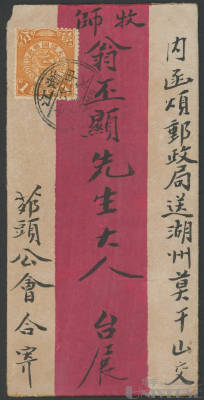 内函煩郵政局送湖州莫干山交
牧師
翁丕顯先生大人 台展
鄭頭公會合寄